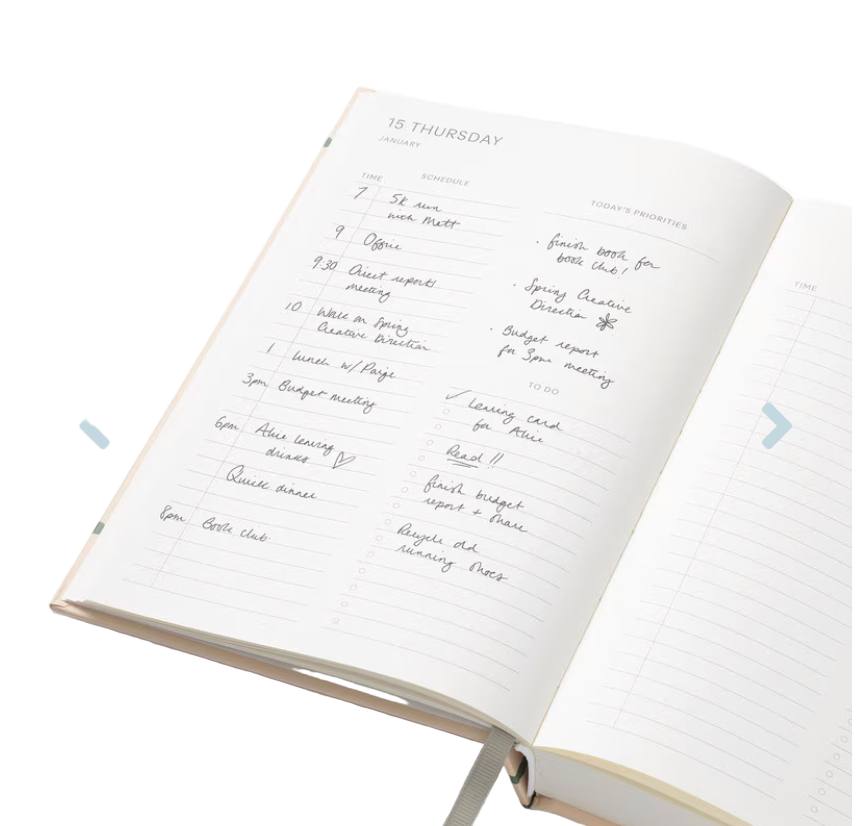 15 THURSDAY
JANUARY
TIME SCHEDULE
7 5k run
with Matt
9 Office
9:30 Direct reports
meeting
10 Work on Spring
Creative Direction
1 lunch w/ Paige
3pm Budget meeting
6pm Alice leaving
drinks ♡
Quick dinner
8pm Book club
TODAY'S PRIORITIES
· finish book for
book club!
· Spring Creative
Direction
· Budget report
for 3pm meeting
TO DO
✓ Leaving card
for Alice
Read!!
finish budget
report + share
Recycle old
running shoes
TIME